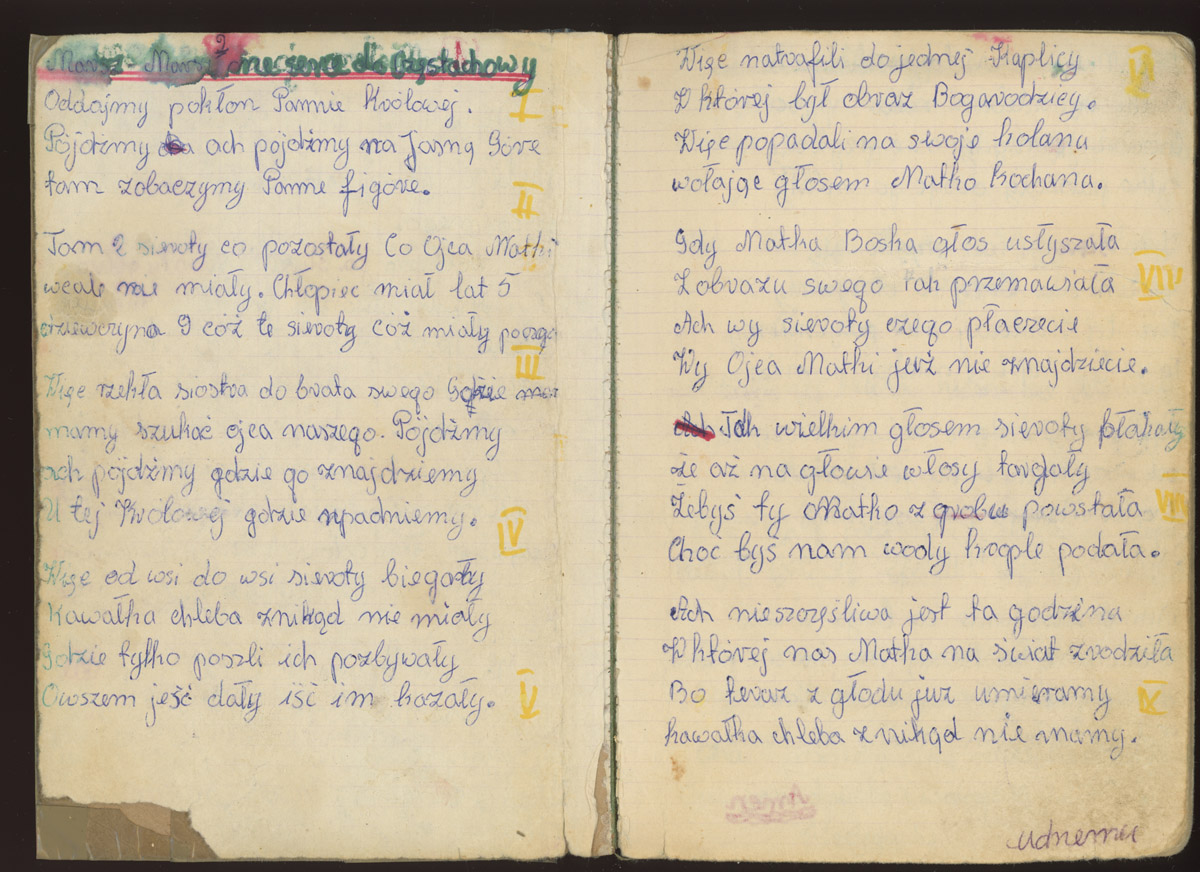 Marsz Marsz me serce do Częstochowy
Oddajmy pokłon Pannie Królowej.
I
Pójdźmy ach pójdźmy na Jasną Góre
tam zobaczymy Panne figóre.
II
Tam 2 sieroty co pozostały Co Ojca Matki
wcale nie miały. Chłopiec miał lat 5
dziewczyna 9 cóż te sieroty cóż miały
III
Więc rzekła siostra do brata swego Gdzie
mamy szukać ojca naszego. Pójdźmy
ach pójdźmy gdzie go znajdziemy
U tej Królowej gdzie upadniemy.
IV
Więc od wsi do wsi sieroty biegały
Kawałka chleba znikąd nie miały
Gdzie tylko poszli ich pozbywały
Owszem jeść dały iść im kazały.
V
Więc natrafili do jednej Kaplicy
W której był obraz Bogarodzicy.
VI
Więc popadali na swoje kolana
wołając głosem Matko Kochana.
Gdy Matka Boska głos usłyszała
Z obrazu swego tak przemawiała
VIII
Ach wy sieroty czego płaczecie
Wy Ojca Matki jerz nie znajdziecie.
Tak wielkim głosem sieroty płakały
że aż na głowie włosy targały
Żebyś ty Matko z grobu powstała
VIII
Choć byś nam wody krople podała.
Ach nieszczęśliwa jest ta godzina
W której nas Matka na świat zrodziła
Bo teraz z głodu już umieramy
IX
kawałka chleba znikąd nie mamy.
Amen